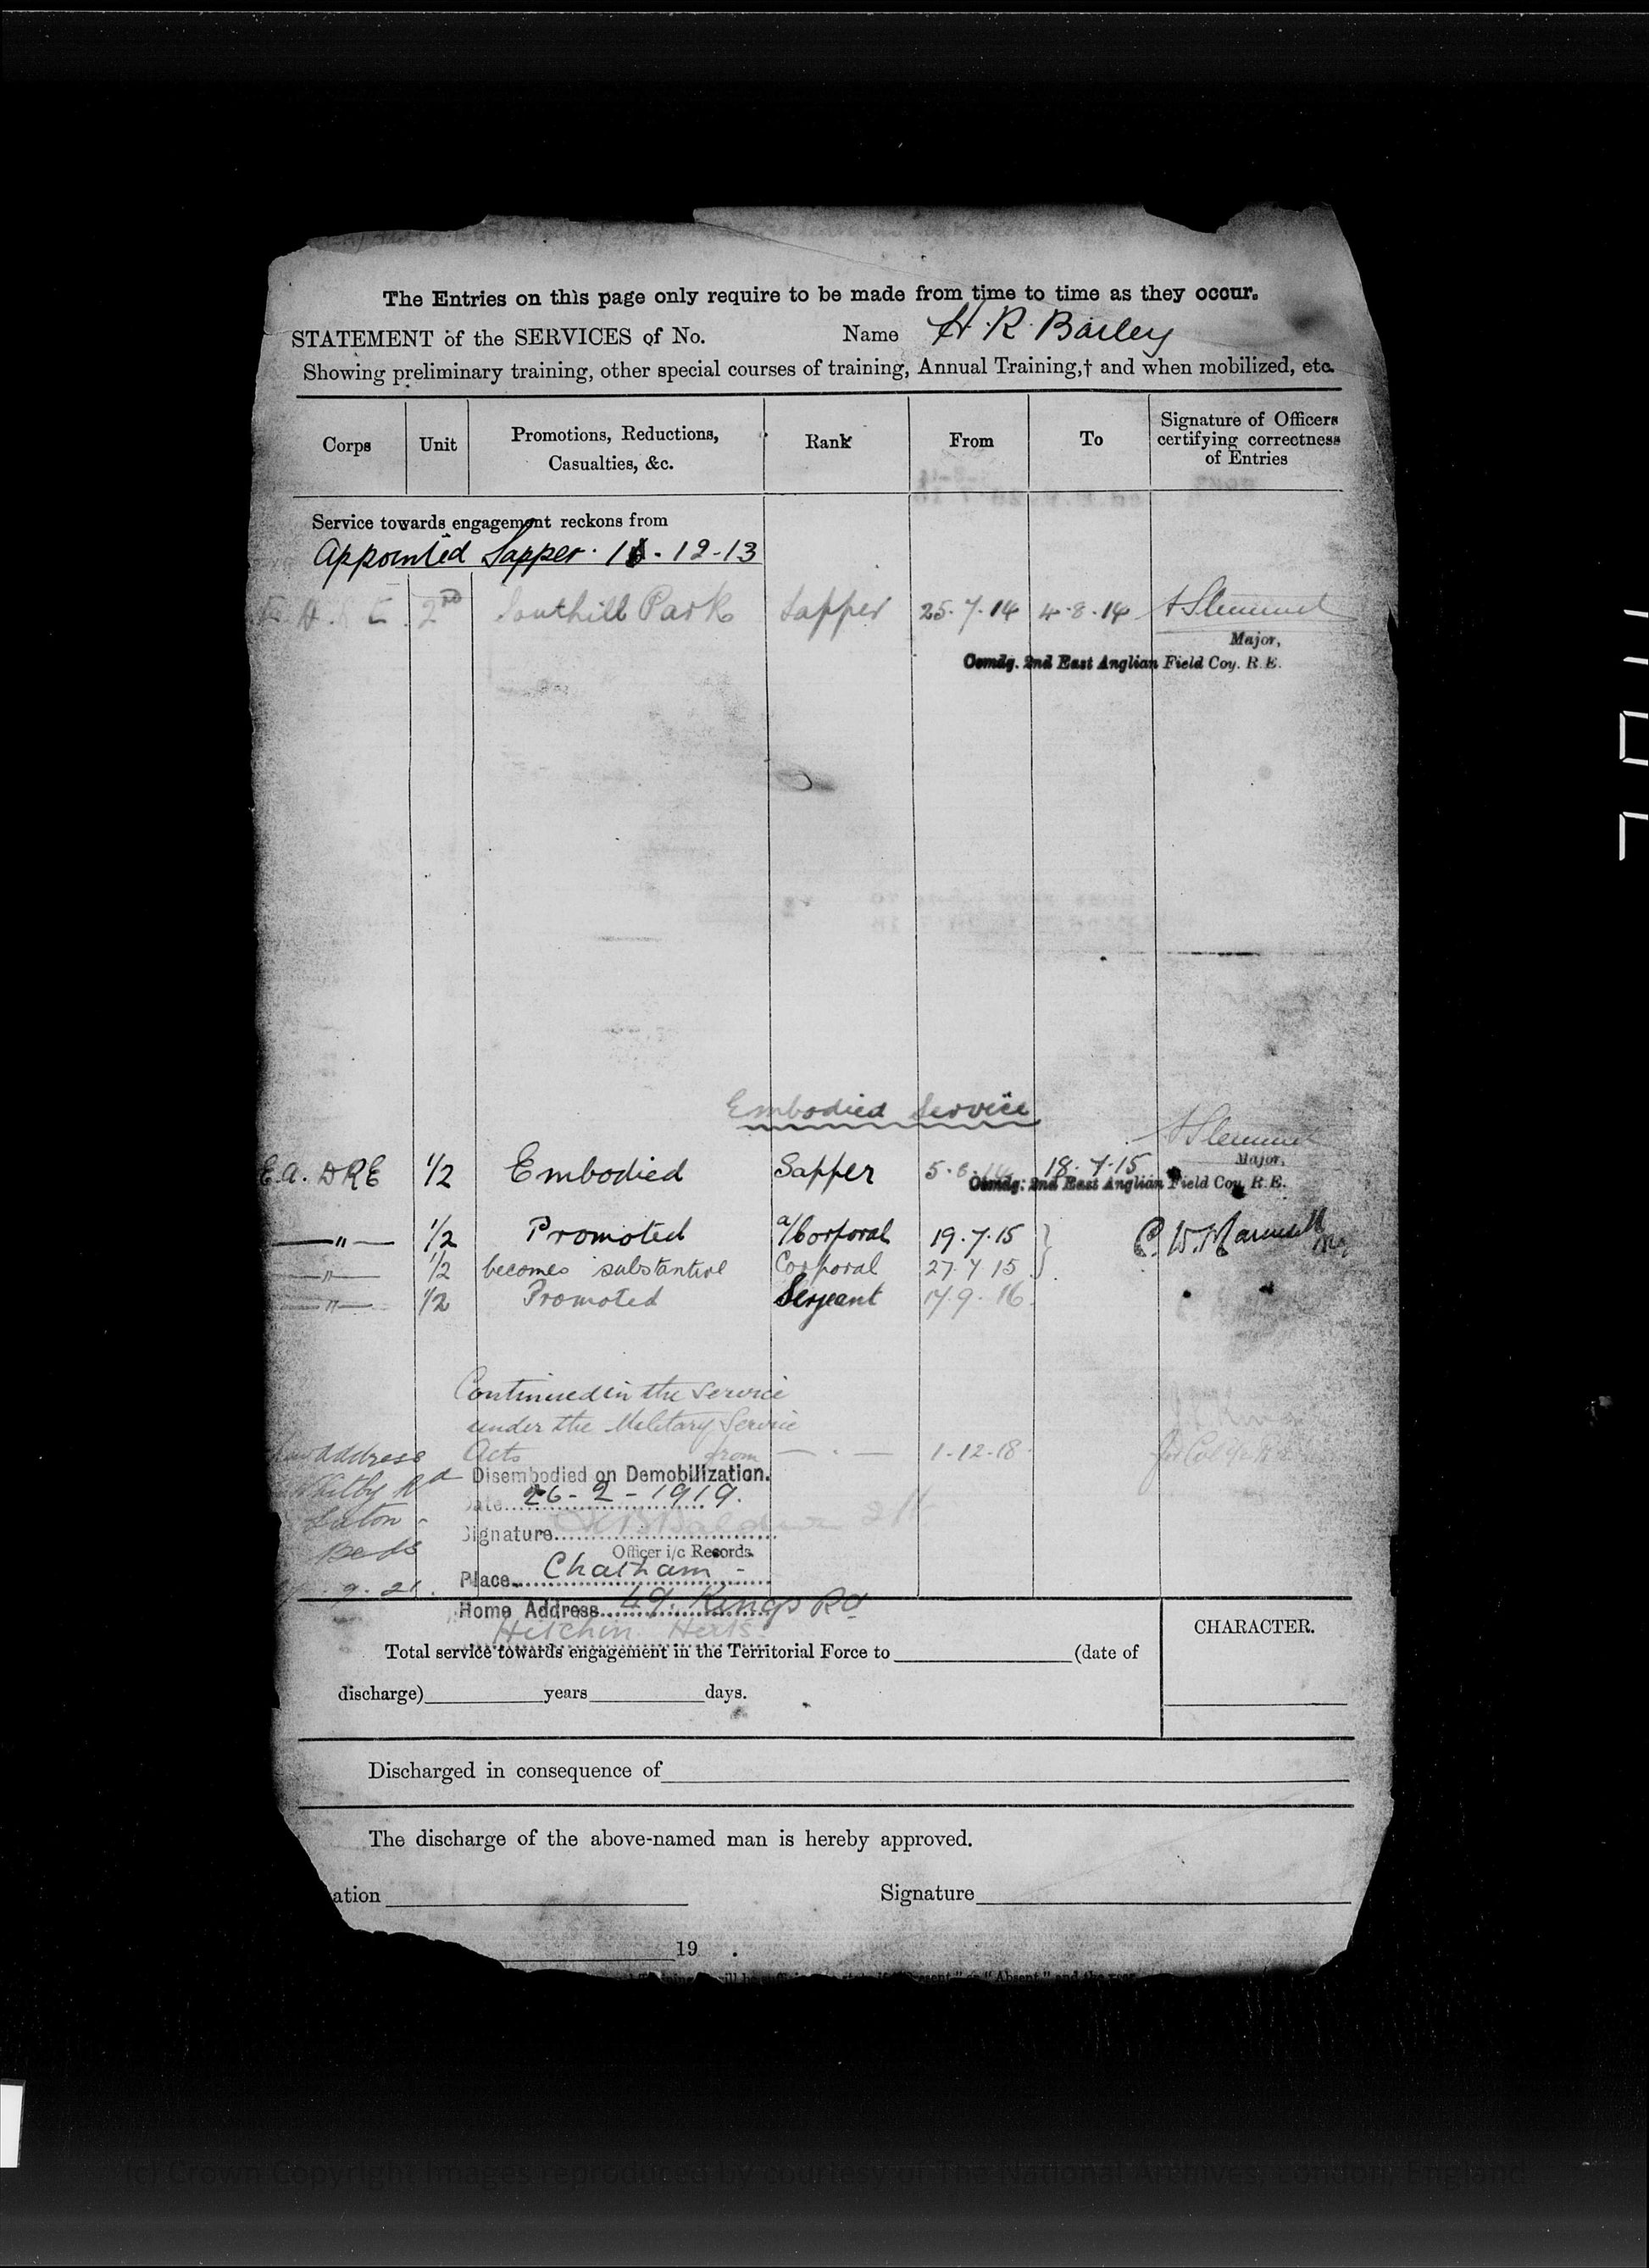 The Entries on this page only require to be made from time to time as they occur.
STATEMENT of the SERVICES of No. Name H. R. Bailey
Showing preliminary training, other special courses of training, Annual Training,† and when mobilized, etc.
Corps Unit Promotions, Reductions, Casualties, &c. Rank From To Signature of Officers certifying correctness of Entries
Service towards engagement reckons from
Appointed Sapper. 12-13
2nd Southill Park Sapper 25.7.14 4.8.14
Major,
Comdg. 2nd East Anglian Field Coy. R.E.
Embodied Service
E.A. DRE 1/2 Embodied Sapper 18.7.15
Major,
Comdg: 2nd East Anglian Field Coy. R.E.
—"— 1/2 Promoted a/Corporal 19.7.15
—"— 1/2 becomes substantive Corporal 27.7.15
—"— 1/2 Promoted Serjeant 17.9.16
Continued in the Service
under the Military Service
address Acts from — . — 1.12.18
Rd Disembodied on Demobilization.
26-2-1919.
Luton
Signature
Beds
Officer i/c Records.
Place Chatham -
9.21.
Home Address 49. Kings Rd
Hitchin Herts.
CHARACTER.
Total service towards engagement in the Territorial Force to (date of
discharge) years days.
Discharged in consequence of
The discharge of the above-named man is hereby approved.
ation Signature
19 .
(c) Crown Copyright Images reproduced by courtesy of The National Archives, London, England